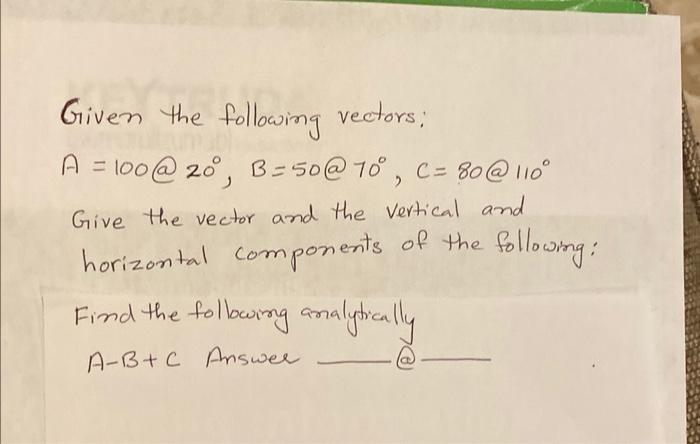 Given the following vectors:
A = 100@ 20°, B=50@ 70°, C= 80@ 110°
Give the vector and the vertical and
horizontal components of the following:
Find the following analytically
A-B+C Answer ____@____